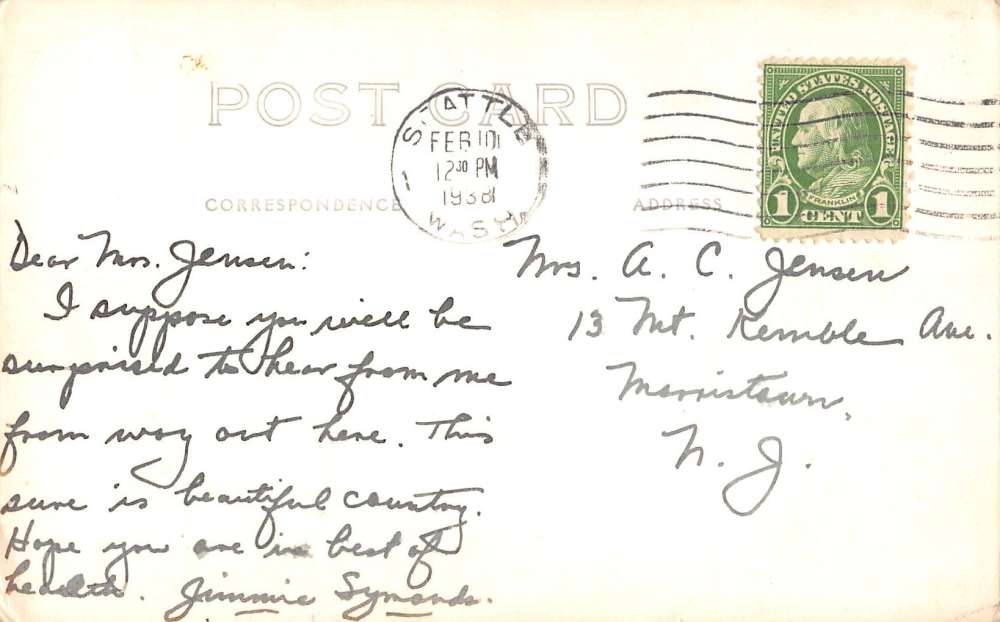 POST CARD
SEATTLE
FEB 10
12 30 PM
1938
WASH
UNITED STATES POSTAGE
FRANKLIN
1 CENT 1
CORRESPONDENCE
ADDRESS
Dear Mrs. Jensen:
I suppose you will be
surprised to hear from me
from way out here. This
sure is beautiful country.
Hope you are in best of
health. Jimmie Symonds.
Mrs. A. C. Jensen
13 Mt. Kemble Ave.
Morristown,
N. J.